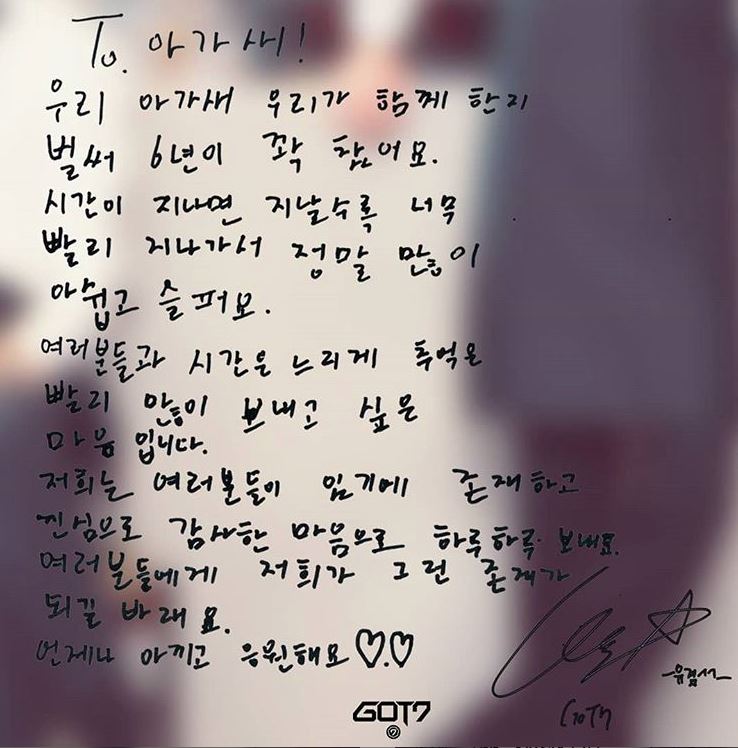 To. 아가새!
우리 아가새 우리가 함께 한지
벌써 6년이 꽉 찼어요.
시간이 지나면 지날수록 너무
빨리 지나가서 정말 많이
아쉽고 슬퍼요.
여러분들과 시간은 느리게 추억은
빨리 많이 보내고 싶은
마음 입니다.
저희는 여러분들이 있기에 존재하고
진심으로 감사한 마음으로 하루하루 보내요.
여러분들에게 저희가 그런 존재가
되길 바래요.
언제나 아끼고 응원해요♡.♡
-유겸서-
GOT7
GOT7